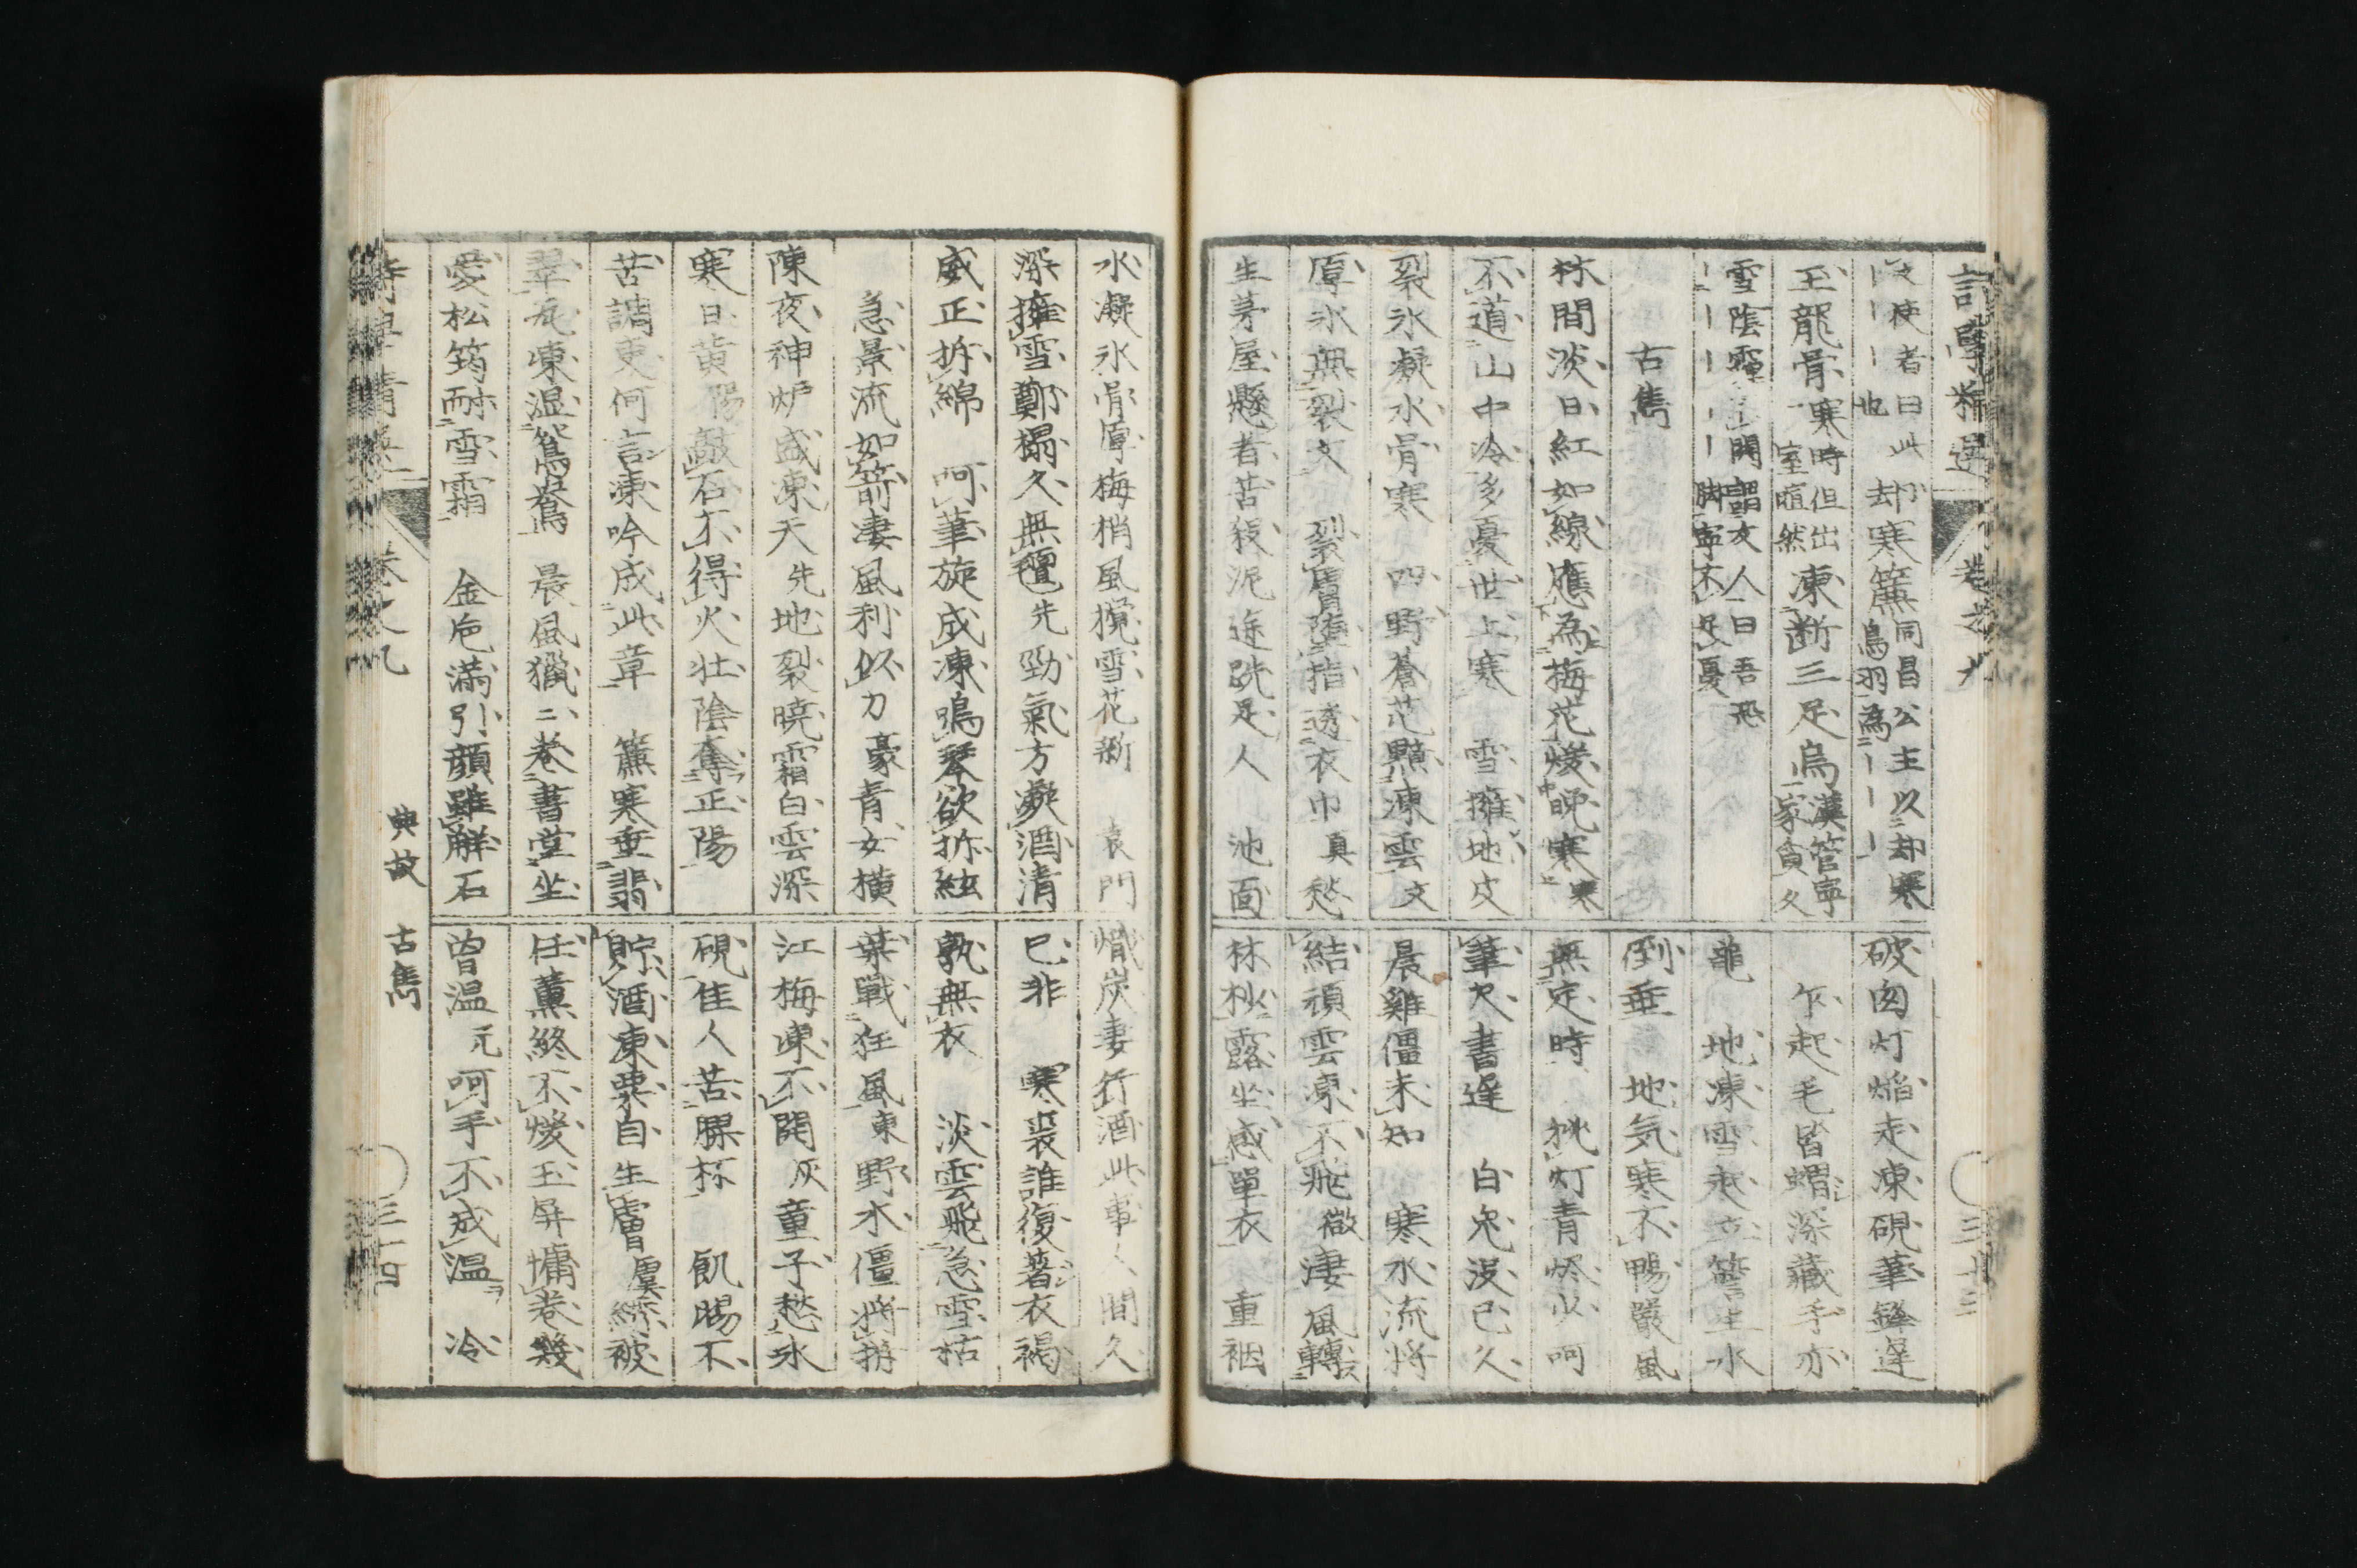 詩學精選 卷之九 三十三
使者曰此却寒簾同昌公主以却寒
也 鳥羽為
玉龍骨寒時但出凍断三足烏漢管寧
室晅然 家貧欠
雪陰 門謂友人曰吾飛
脚寧不足憂
古雋
林間淡日紅如線應為梅花煖晩寒寒
不道山中冷多憂世上寒 雪擁地皮
裂氷凝水骨寒 四野蒼茫黯凍雲文
厚氷無裂文 裂膚堕指透衣巾真愁
生茅屋懸者苦殺泥途跣足人 池面
破囱灯焔走凍硯筆鋒遅
乍起毛皆蝟深藏手亦
龜 地凍雪走立簷生水
倒垂 地気寒不暢嚴風
無定時 挑灯青燼少呵
筆欠書遲 白兔没已久
晨雞僵未知 寒水流將
結頑雲凍不飛微凄風轉
林秋露坐感單衣 重裀
水凝氷骨厚梅梢風攪雪花新 袁門
深擁雪鄭榻久無氈先勁氣方凝酒清
威正折綿 呵筆旋成凍鳴琴欲折絃
急景流如箭凄風利似刀豪青女横
陳夜神炉盛凍天先地裂曉霜白雲深
寒日黄陽敲石不得火壮陰奪正陽
苦調更何言凍吟成此章 簾寒垂翡
翠瓦凍温鴛鴦 晨風獵二巻書堂坐
愛松筠耐雪霜 金卮滿引顔雖解石
熾炭妻行酒此事人間久
已非 寒裘誰復著衣褐
孰無衣 淡雲飛急雪枯
葉戰狂風東野水僵將折
江梅凍不開灰童子愁氷
硯佳人苦膠杯 飢賜不
貯酒凍栗自生膚虞綈被
任薫終不煖玉屏慵巻幾
曽温元呵手不成温 冷
詩學精選 卷之九 典故 古雋 三十四